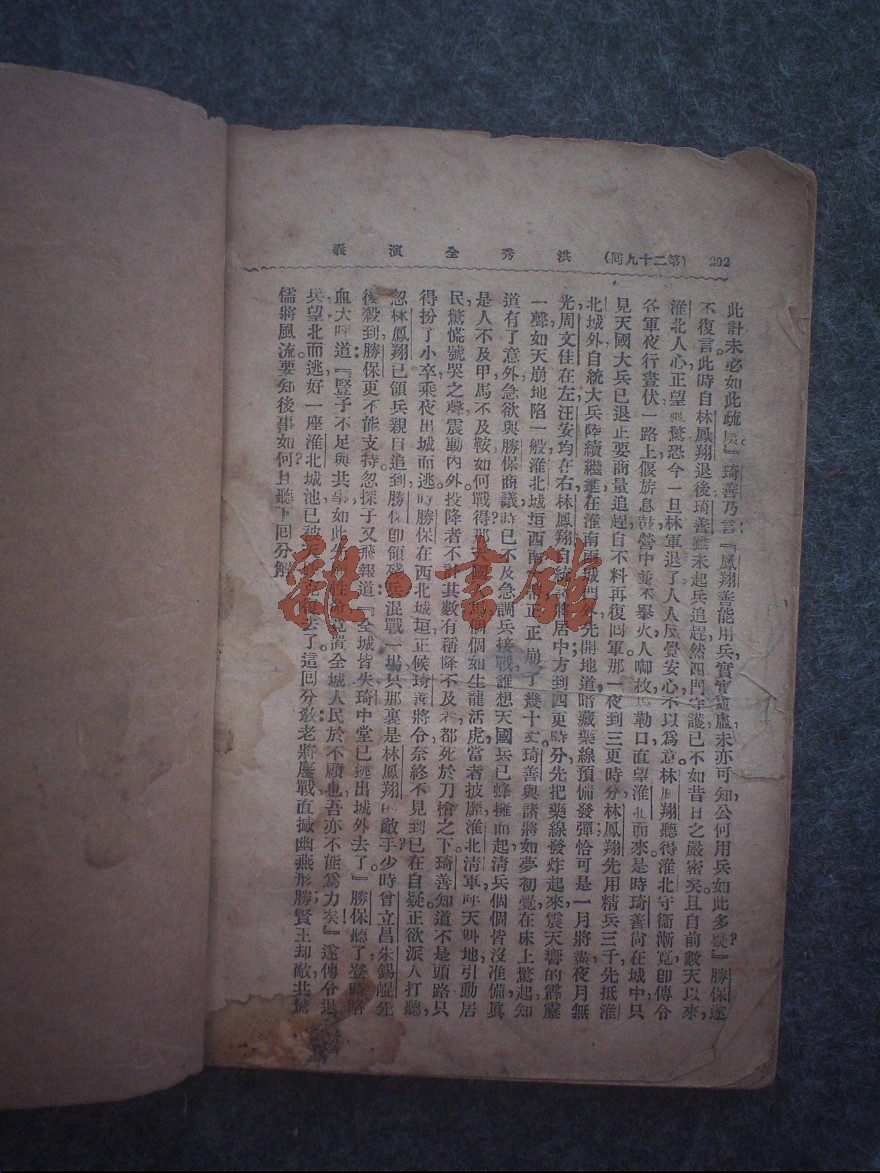 洪秀全演義 (第二十九回) 202
此計未必如此疏虞。』琦善乃言：『鳳翔善能用兵，實實虛虛，未亦可知，公何用兵如此多疑？』勝保遂
不復言。此時自林鳳翔退後，琦善雖未起兵追趕，然四門守護，已不如昔日之嚴密矣。且自前數天以來，
淮北人心，正望驚恐，今一旦林軍退了，人人反覺安心，不以為意。林鳳翔聽得淮北守衞漸寬，即傳令
各軍夜行晝伏，一路上偃旂息鼓，營中並不舉火，人啣枚，馬勒口，直望淮北而來。是時琦善尚在城中，只
見天國大兵已退，止要商量追趕，自不料再復回軍。那一夜到三更時分，林鳳翔先用精兵三千，先抵淮
北城外，自統大兵陸續繼進，在淮南兩城門，先開地道，暗藏藥線，預備發彈。恰可是一月將盡，夜月無
光，周文佳在左，汪安均在右，林鳳翔自統居中，方到四更時分，先把藥線發炸起來，震天響的霹靂
一聲，如天崩地陷一般，淮北城垣西南正崩了幾十丈。琦善與諸將如夢初覺，在床上驚起，知
道有了意外，急欲與勝保商議，時已不及，急調兵接戰，誰想天國兵已蜂擁而起，清兵個個皆沒准備，眞
是人不及甲，馬不及鞍，如何戰得？那天國個個如生龍活虎，當者披靡，淮北清軍呼天叫地，引動居
民，驚慌號哭之聲，震動內外。投降者不計其數，有稱降不及者，都死於刀槍之下。琦善知道不是頭路，只
得扮了小卒，乘夜出城而逃。時勝保在西北城垣，正候琦善將令，奈終不見到，已在自疑，正欲派人打聽，
忽林鳳翔已領兵親自追到，勝保即領殘兵混戰一場，只那裏是林鳳翔敵手？少時曾立昌朱錫崐先
後殺到，勝保更不能支持。忽探子又飛報道：『全城皆失，琦中堂已逃出城外去了。』勝保聽了，登時咯
血，大呼道：『豎子不足與共事！如此置全城人民於不顧也，吾亦不能為力矣！』遂傳令退
兵，望北而逃，好一座淮北城池，已被去了。這回分教：老將鏖戰，直撼幽燕形勝；賢王却敵，共驚
儒將風流。要知後事如何？且聽下回分解。
雜·書館